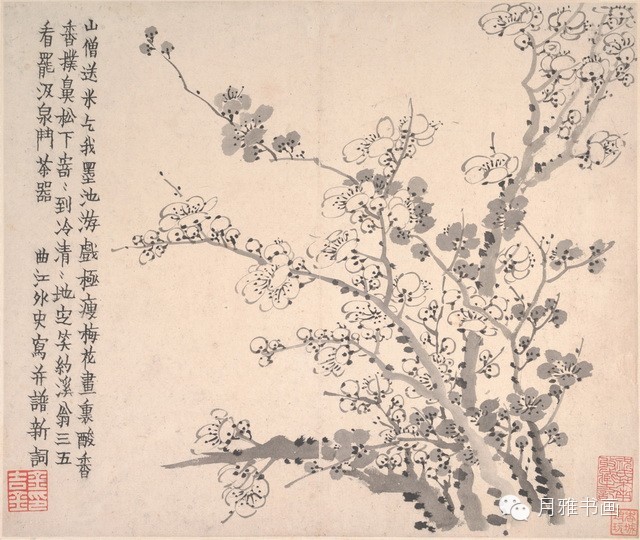 山僧送米乞我墨池游戲極瘦梅花畫裏酸香
香撲鼻松下寄〻到冷清〻地定笑約溪翁三五
看罷汲泉鬥茶器
曲江外史寫并譜新詞
月雅书画